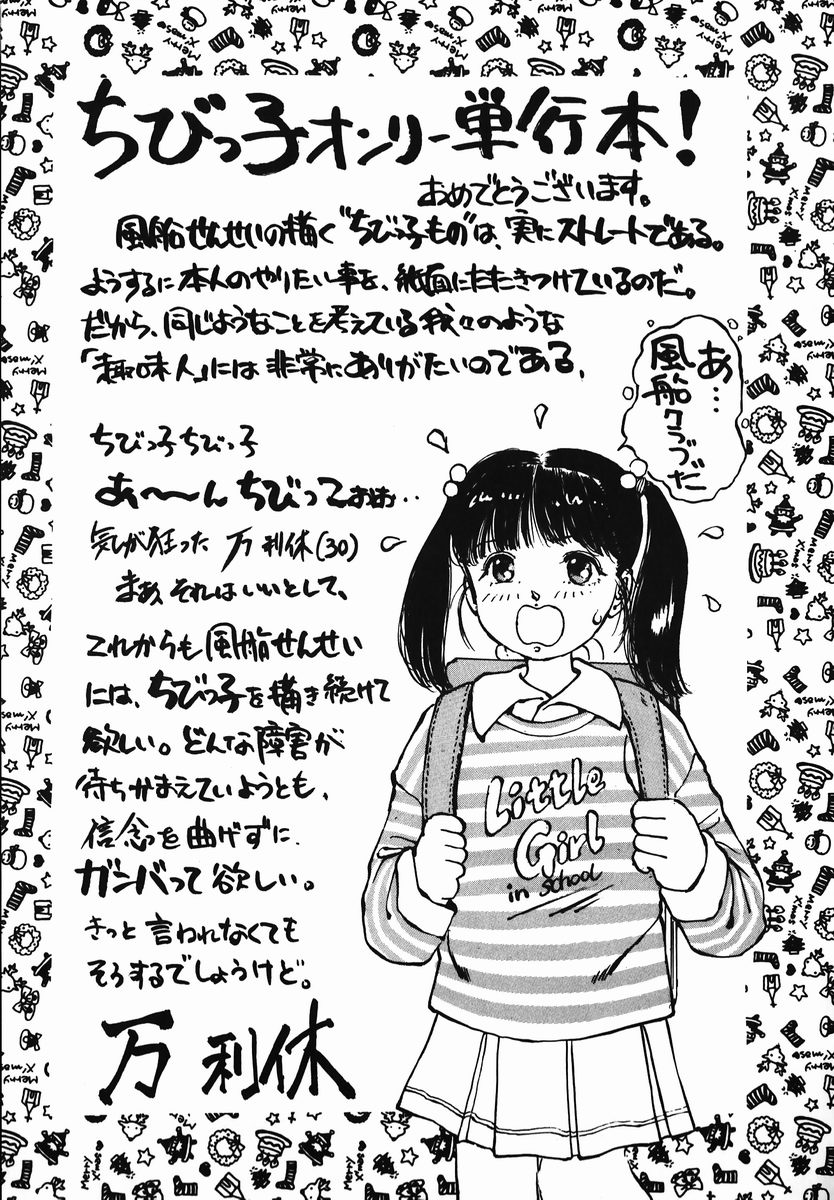 ちびっ子オンリー単行本!
おめでとうございます。
風船せんせいの描く"ちびっ子もの"は、実にストレートである。
ようするに本人のやりたい事を、紙面にたたきつけているのだ。
だから、同じようなことを考えている我々のような
「趣味人」には非常にありがたいのである。
あ…
風船クラブだ
ちびっ子ちびっ子
あ〜〜ん ちびっこおぉ‥
気が狂った 万利休(30)
まぁ、それはいいとして、
これからも風船せんせい
には、ちびっ子を描き続けて
欲しい。どんな障害が
待ちかまえていようとも、
信念を曲げずに
ガンバって欲しい。
きっと言われなくても
そうするでしょうけど。
万利休
Little
Girl
in School
Merry
X'mas